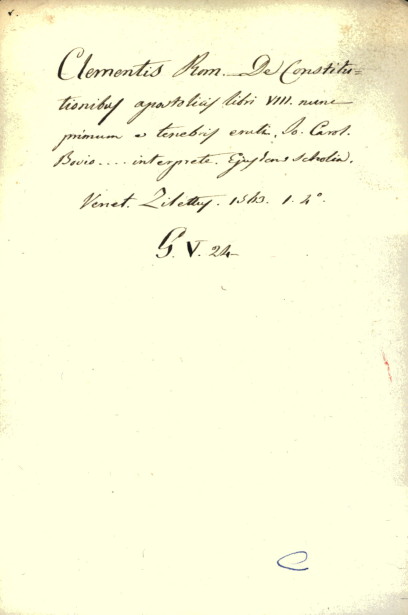 Clementis Rom. De Constitu=
tionibus apostolicis libri VIII. nunc
primum e tenebris eruti, Io. Carol.
Bovio.... interprete. Ejusdem scholia.
Venet. Zilettus. 1563. 1. 4°.
G. V. 24